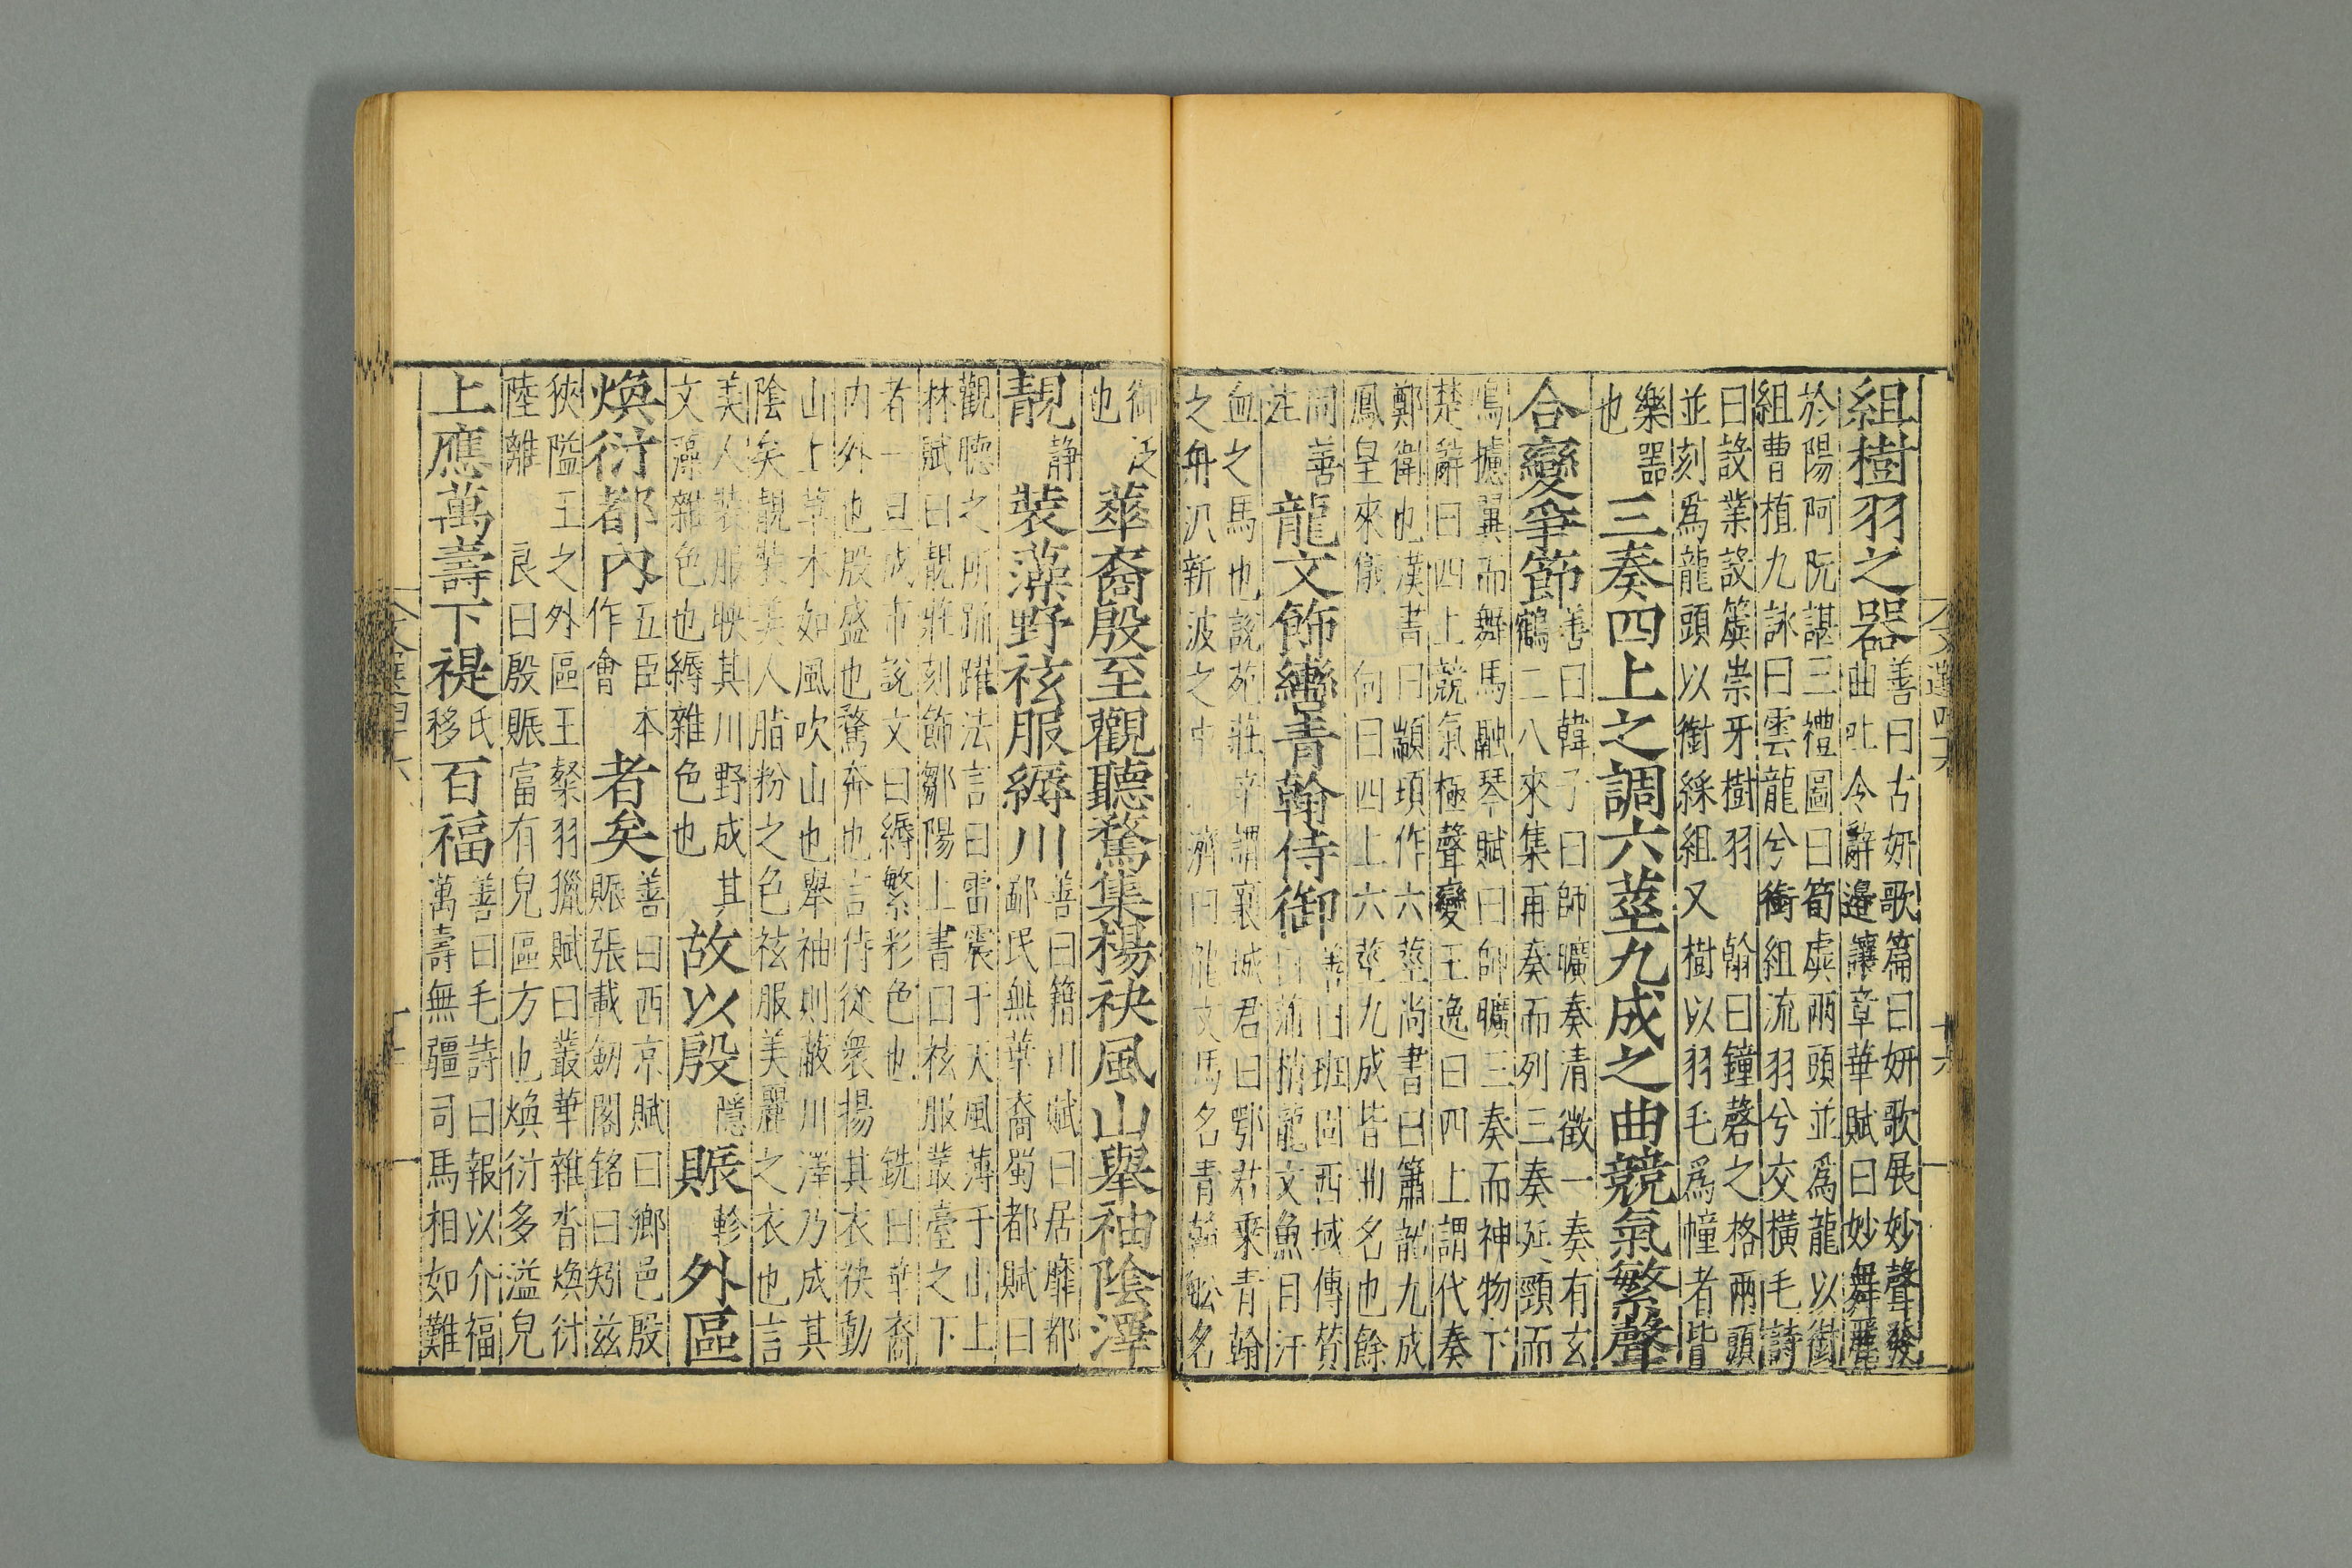 組樹羽之器善曰古妍歌篇曰妍歌展妙聲發
曲吐令辭邉讓章華賦曰妙舞麗
於陽阿阮諶三禮圖曰筍虡兩頭並爲龍以銜
組曹植九詠曰雲龍兮銜組流羽兮交橫毛詩
曰設業設簴崇牙樹羽 翰曰鐘磬之格兩頭
並刻爲龍頭以銜綵組又樹以羽毛爲幢者皆
樂器
也
三奏四上之調六莖九成之曲競氣繁聲
合變爭節善曰韓子曰師曠奏清徵一奏有玄
鶴二八來集再奏而列三奏延頸而
鳴攄翼而舞馬融琴賦曰師曠三奏而神物下
楚辭曰四上競氣極聲變王逸曰四上謂代奏
鄭衛也漢書曰顓頊作六莖尚書曰簫韶九成
鳳皇來儀 向曰四上六莖九成皆曲名也餘
同善
注
龍文飾轡青翰侍御善曰班固西域傳贊
曰蒲梢龍文魚目汗
血之馬也說苑莊辛謂襄城君曰鄂君乘青翰
之舟汎新波之中 濟曰龍文馬名青翰舩名
御泛
也
華裔殷至觀聽騖集楊袂風山舉袖陰澤
靚静裝藻野袨服縟川善曰籍川賦曰居靡都
鄙民無華裔蜀都賦曰
觀聽之所踊躍法言曰雷震于天風薄于山上
林賦曰靚莊刻飾鄒陽上書曰袨服叢臺之下
者一旦成市說文曰縟繁彩色也 銑曰華裔
内外也殷盛也騖奔也言侍從衆揚其衣袂動
山上草木如風吹山也舉袖則蔽川澤乃成其
陰矣靚裝美人脂粉之色袨服美麗之衣也言
美人裝服映其川野成其
文藻雜色也縟雜色也
故以殷隱賑軫外區
煥衍都內五臣本
作會
者矣善曰西京賦曰鄉邑殷
賑張載劒閣銘曰矧兹
狹隘王之外區王粲羽獵賦曰叢華雜沓煥衍
陸離 良曰殷賑富有皃區方也煥衍多溢皃
上應萬壽下禔氏
移
百福善曰毛詩曰報以介福
萬壽無疆司馬相如難